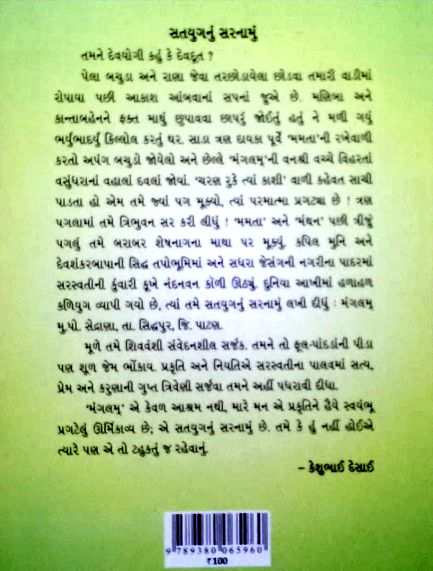 સતયુગનું સરનામું
તમને દેવયોગી કહું કે દેવદૂત ?
પેલા બચુડા અને રાણા જેવા તરછોડાયેલા છોડવા તમારી વાડીમાં
રોપાયા પછી આકાશ આંબવાનાં સપનાં જુએ છે. મણિબા અને
કાન્તાબહેનને ફક્ત માથું છુપાવવા છાપરું જોઈતું હતું ને મળી ગયું
ભર્યુંભાદર્યું કિલ્લોલ કરતું ઘર. સાડા ત્રણ દાયકા પૂર્વે 'મમતા'ની રખેવાળી
કરતો અપંગ બચુડો જોયેલો અને છેલ્લે 'મંગલમ્'ની વનશ્રી વચ્ચે વિહરતાં
વસુંધરાનાં વહાલાં દવલાં જોયાં. 'ચરણ રુકે ત્યાં કાશી' વાળી કહેવત સાચી
પાડતા હો એમ તમે જ્યાં પગ મૂક્યો, ત્યાં પરમાત્મા પ્રગટ્યા છે ! ત્રણ
પગલામાં તમે ત્રિભુવન સર કરી લીધું ! 'મમતા' અને 'મંથન' પછી ત્રીજું
પગલું તમે બરાબર શેષનાગના માથા પર મૂક્યું. કપિલ મુનિ અને
દેવશંકરબાપાની સિદ્ધ તપોભૂમિમાં અને સધરા જેસંગની નગરીના પાદરમાં
સરસ્વતીની કુંવારી કૂખે નંદનવન કૉળી ઊઠ્યું. દુનિયા આખીમાં હળાહળ
કળિયુગ વ્યાપી ગયો છે, ત્યાં તમે સતયુગનું સરનામું લખી દીધું : મંગલમ્
મુ.પો. સેદ્રાણા, તા. સિદ્ધપુર, જિ. પાટણ.
મૂળે તમે શિવવંશી સંવેદનશીલ સર્જક. તમને તો ફૂલ-પાંદડાંની પીડા
પણ શૂળ જેમ ભોંકાય. પ્રકૃતિ અને નિયતિએ સરસ્વતીના પાલવમાં સત્ય,
પ્રેમ અને કરુણાની ગુપ્ત ત્રિવેણી સર્જવા તમને અહીં પધરાવી દીધા.
'મંગલમ્' એ કેવળ આશ્રમ નથી, મારે મન એ પ્રકૃતિને હૈયે સ્વયંભૂ
પ્રગટેલું ઊર્મિકાવ્ય છે; એ સતયુગનું સરનામું છે. તમે કે હું નહીં હોઈએ
ત્યારે પણ એ તો ટહુકતું જ રહેવાનું.
– કેશુભાઈ દેસાઈ
9 789380 065960
₹100